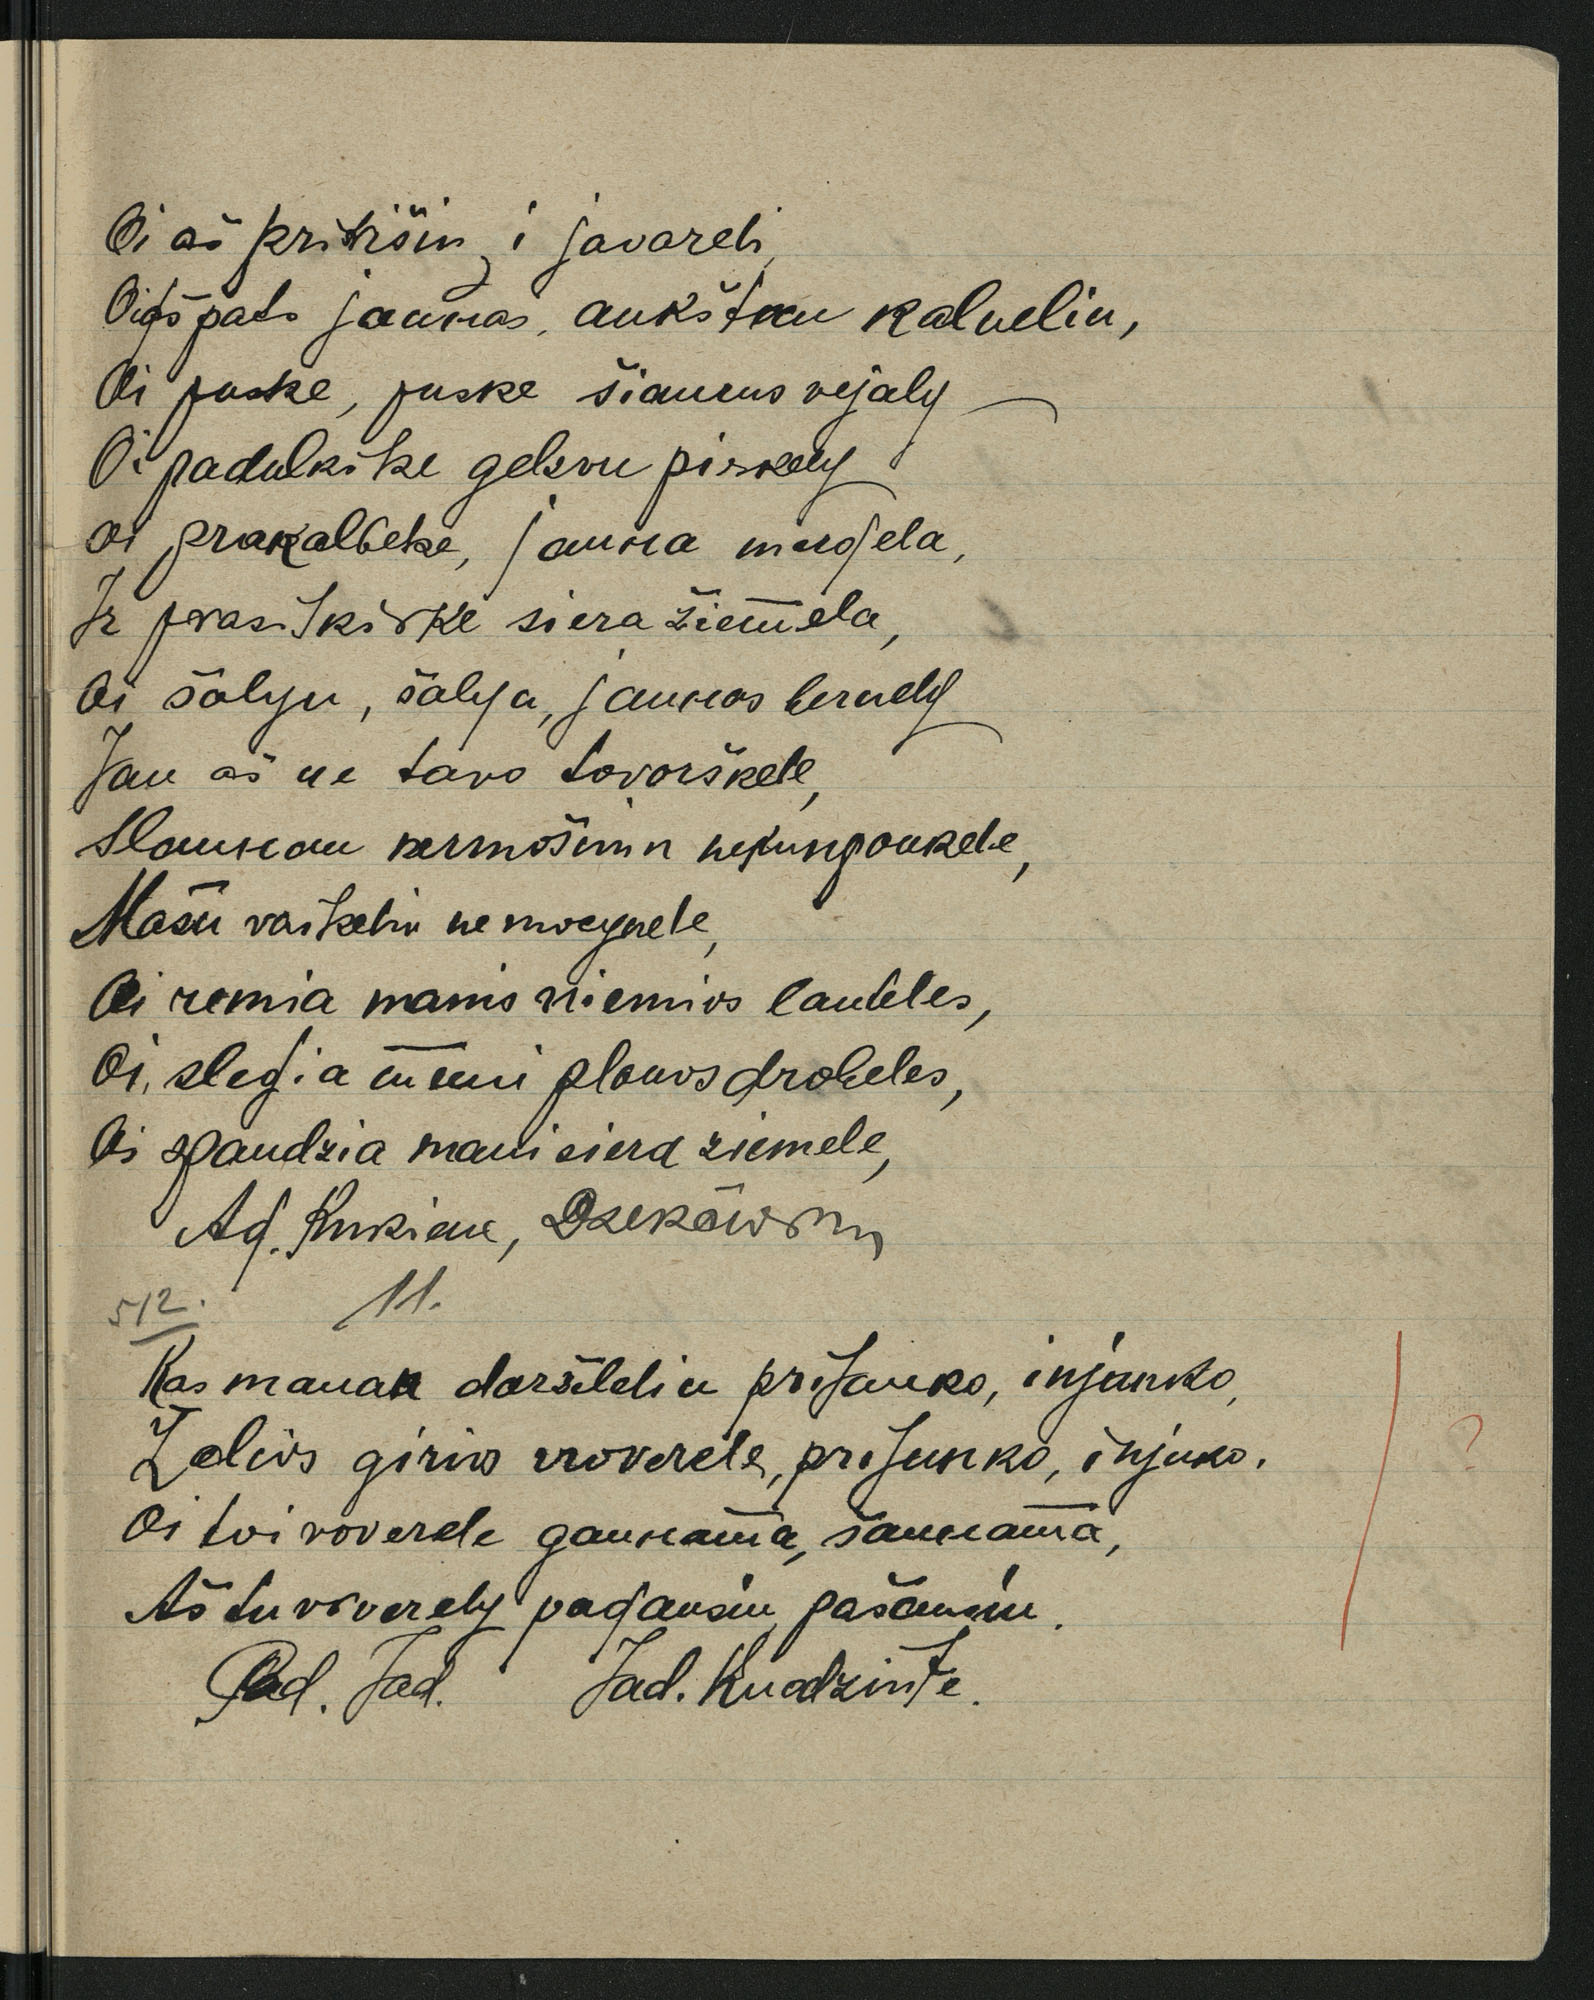 Oi aš pririšin į javareli,
Oi aš pats jaunas, aukštan kalnelin,
Oi puske, puske šiaurus vejaly
Oi padulkike gelsvu pieskely
Oi prakalbeke, jauna mergela,
Ir prasiskirke siera žiemela,
Oi šalyn, šalyn, jaunas bernely
Jau aš ne tavo tavorškele,
Slaunan kermošiun
Mašu vaikeliu ne
Oi remia manis niemios lauteles,
Oi, slegia mani plonos drobeles,
Oi spaudzia mani siera ziemele,
Ag. Kukiene,
512. 11.
Kas manan darželelin prijunko, injunko,
Žalios girios voverele, prijunko, injunko.
Oi toi voverele gaunama, šaunama,
Aš tu voverely pagausiu, pašausiu.
Pad. Jad. Jad. Kuodzinte.
?